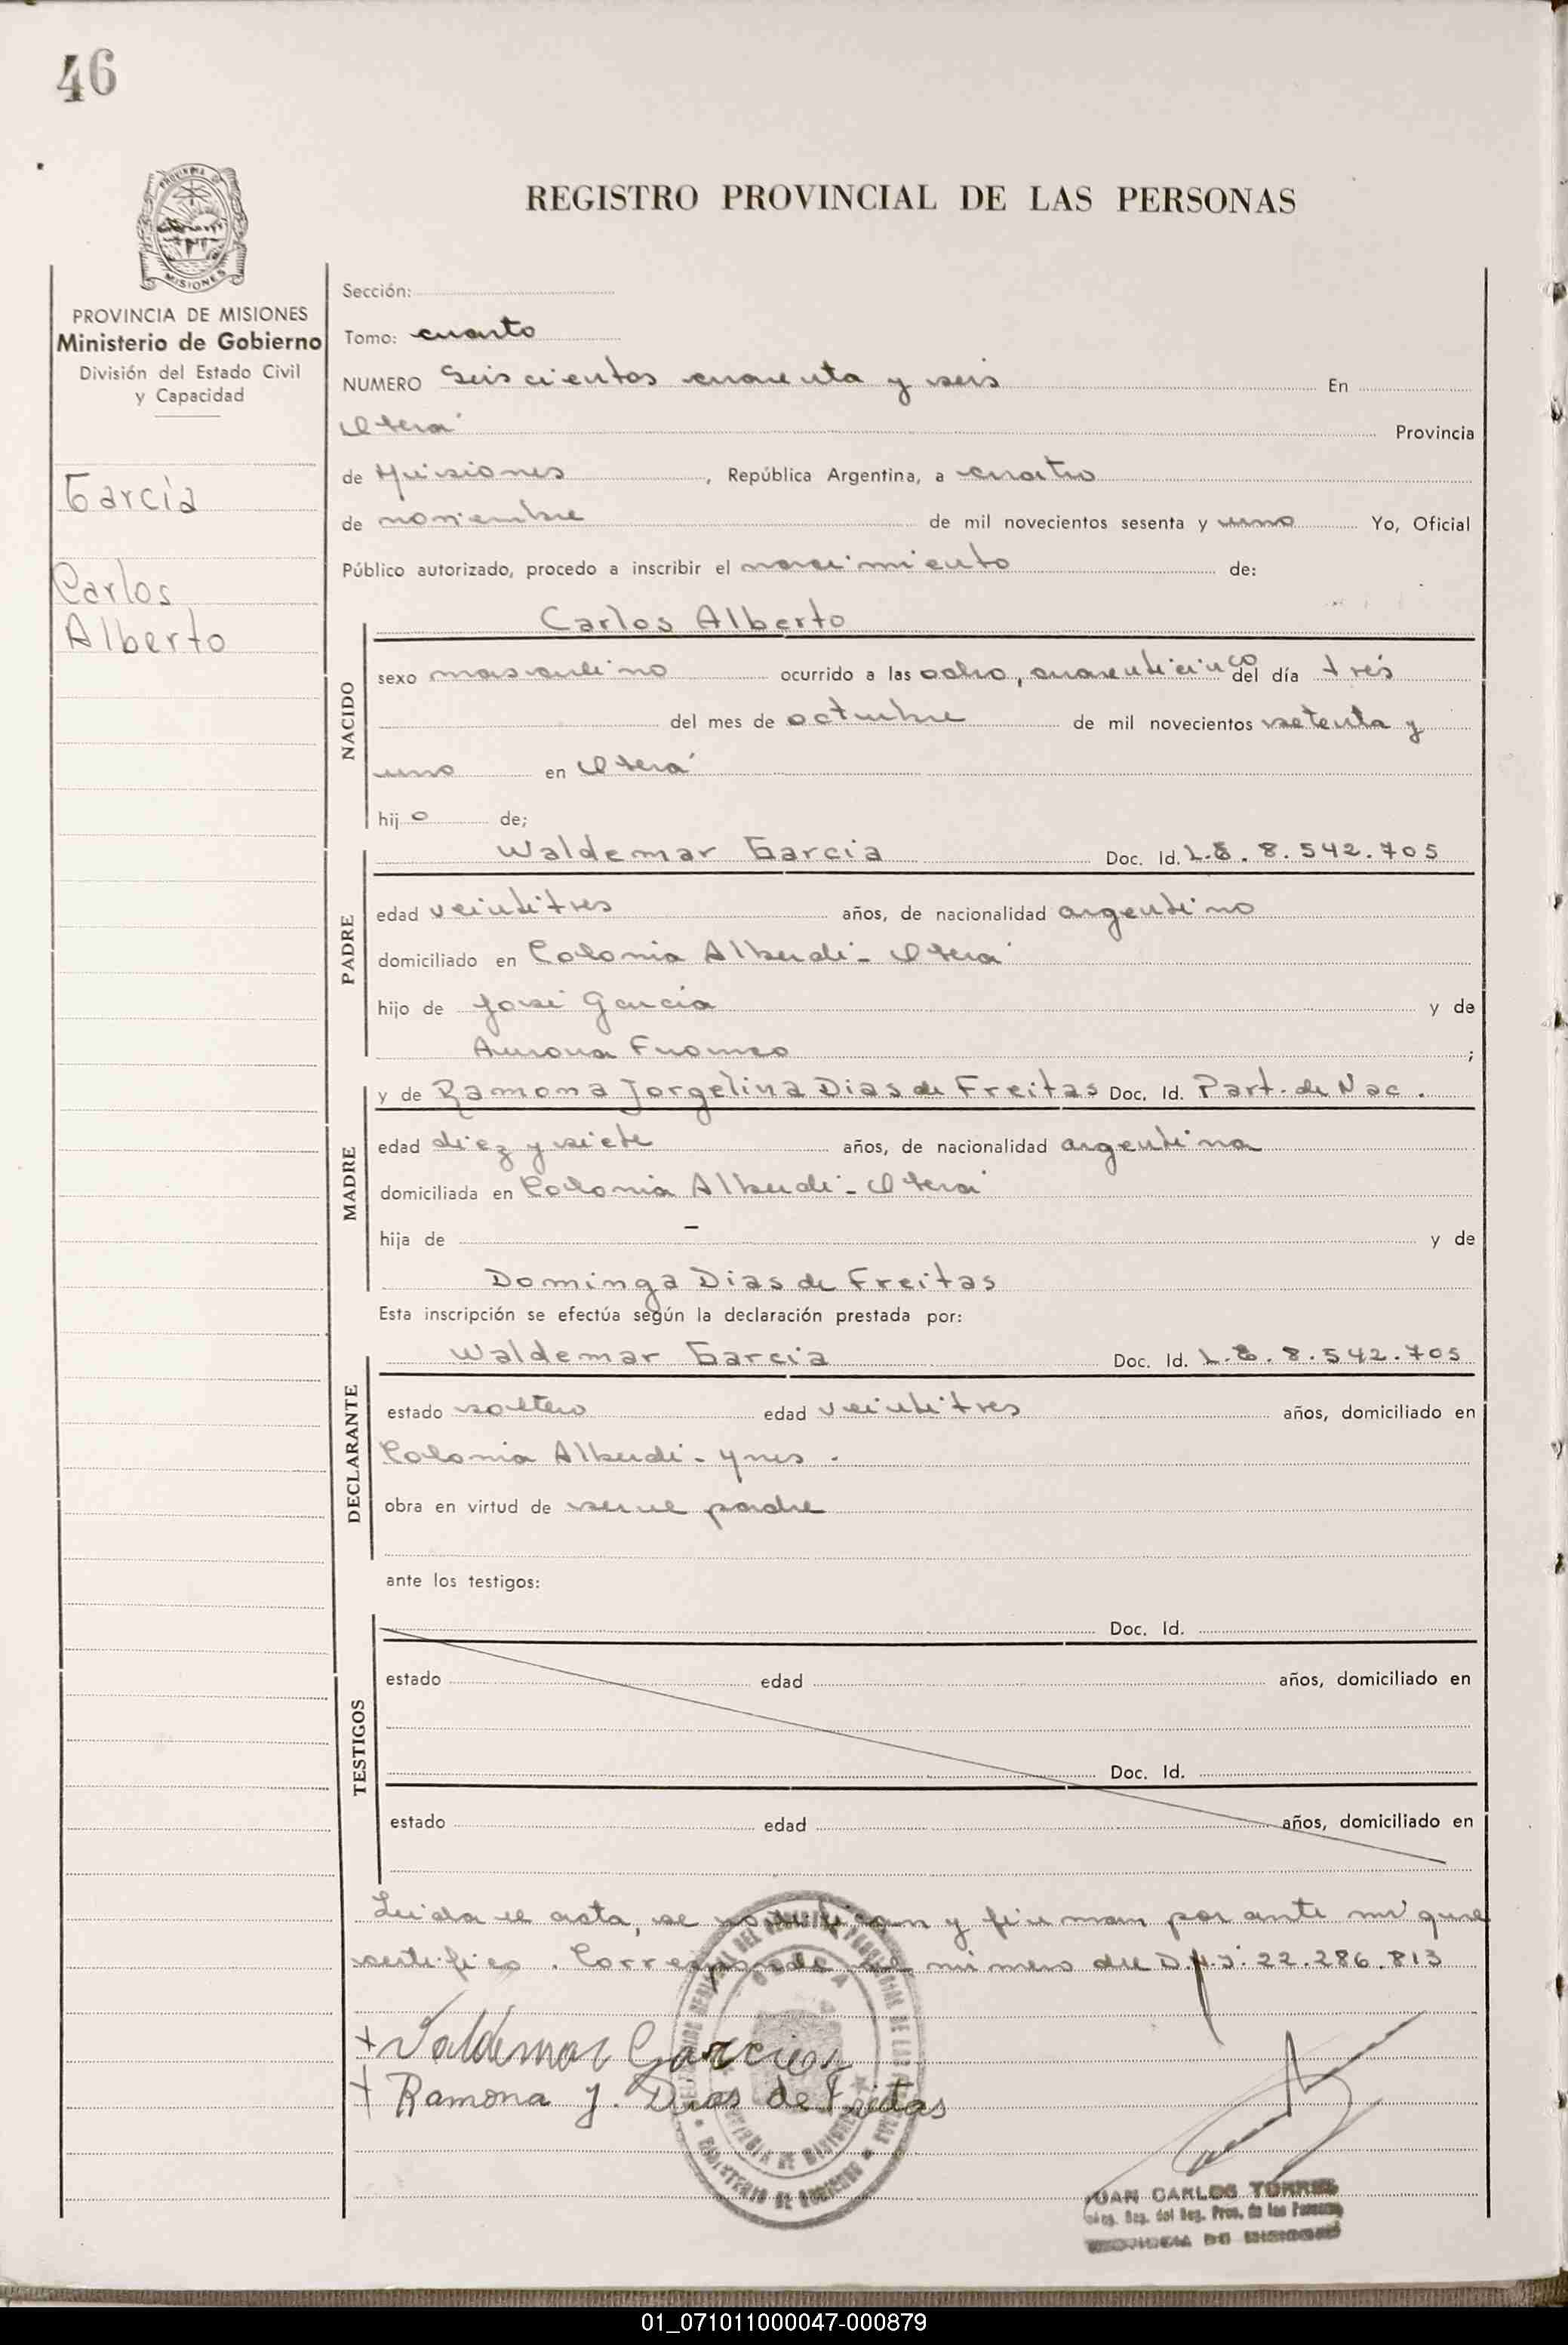 46
PROVINCIA DE MISIONES
Ministerio de Gobierno
División del Estado Civil
y Capacidad
García
Carlos
Alberto
REGISTRO PROVINCIAL DE LAS PERSONAS
Sección:
Tomo: cuarto
NUMERO Seiscientos cuarenta y seis En
Oberá Provincia
de Misiones, República Argentina, a cuatro
de noviembre de mil novecientos sesenta y uno Yo, Oficial
Público autorizado, procedo a inscribir el nacimiento de:
NACIDO
Carlos Alberto
sexo masculino ocurrido a las ocho, cuarenticinco del día tres
del mes de octubre de mil novecientos setenta y
uno en Oberá
hijo de;
PADRE
Waldemar Garcia Doc. Id. L.E. 8.542.705
edad veintitres años, de nacionalidad argentino
domiciliado en Colonia Alberdi - Oberá
hijo de José García y de
Aurora ;
MADRE
y de Ramona Jorgelina Dias de Freitas Doc. Id. Part. de Nac.
edad diez y siete años, de nacionalidad argentina
domiciliada en Colonia Alberdi - Oberá
hija de - y de
Dominga Dias de Freitas
Esta inscripción se efectúa según la declaración prestada por:
DECLARANTE
Waldemar Garcia Doc. Id. L.E. 8.542.705
estado soltero edad veintitres años, domiciliado en
Colonia Alberdi -
obra en virtud de ser el padre
ante los testigos:
TESTIGOS
Doc. Id.
estado edad años, domiciliado en
Doc. Id.
estado edad años, domiciliado en
Leida el acta, se y firman por ante mi que
certifico. Corresponde al número del D.N.I: 22.286.813
Valdemar Garcia
Ramona J. Dias de Freitas
JUAN CARLOS TORRES
01_071011000047-000879